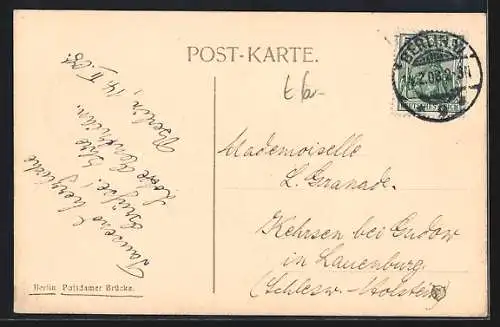 POST-KARTE.
BERLIN W.
14.2.08.2-3N
Berlin, 14. II. 08.
Tausend herzliche
Grüsse,
Mademoiselle
L. Granade.
Kehrsen bei Gudow
in Lauenburg
(Schlesw-Holstein)
Berlin Potsdamer Brücke.